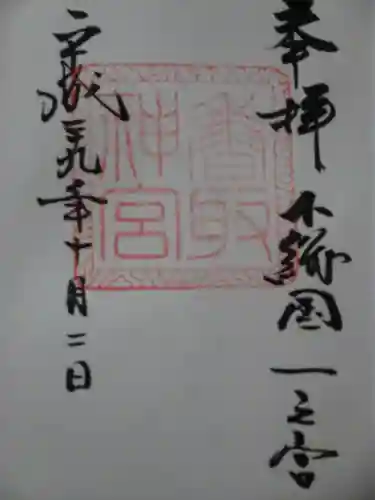 奉拝 下総国一之宮
香取神宮
平成二九年十月二日